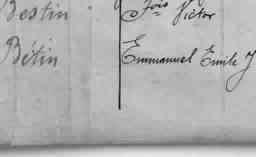 Bestin Fois Victor
Bétin Emmanuel Emile J